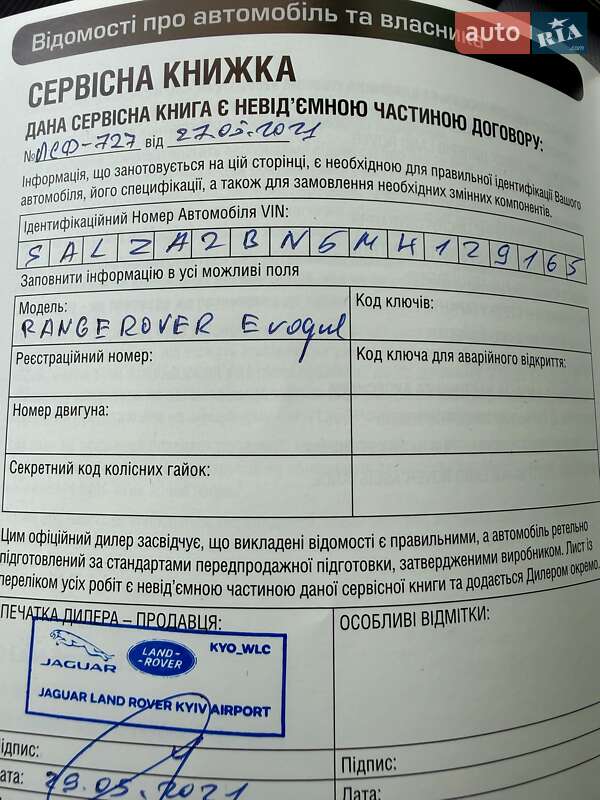 Відомості про автомобіль та власника
auto RIA.com
СЕРВІСНА КНИЖКА
ДАНА СЕРВІСНА КНИГА Є НЕВІД'ЄМНОЮ ЧАСТИНОЮ ДОГОВОРУ:
№ ЛСФ-727 від 27.05.2021
Інформація, що занотовується на цій сторінці, є необхідною для правильної ідентифікації Вашого
автомобіля, його специфікації, а також для замовлення необхідних змінних компонентів.
Ідентифікаційний Номер Автомобіля VIN:
SALZA2BN6MH129165
Заповнити інформацію в усі можливі поля
Модель: Код ключів:
RANGE ROVER Evoque
Реєстраційний номер: Код ключа для аварійного відкриття:
Номер двигуна:
Секретний код колісних гайок:
Цим офіційний дилер засвідчує, що викладені відомості є правильними, а автомобіль ретельно
підготовлений за стандартами передпродажної підготовки, затвердженими виробником. Лист із
переліком усіх робіт є невід'ємною частиною даної сервісної книги та додається Дилером окремо.
ПЕЧАТКА ДИЛЕРА – ПРОДАВЦЯ: ОСОБЛИВІ ВІДМІТКИ:
JAGUAR LAND-ROVER KYO_WLC
JAGUAR LAND ROVER KYIV AIRPORT
Підпис: Підпис:
Дата: 29.05.2021 Дата: